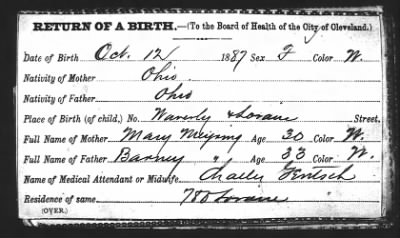 RETURN OF A BIRTH.—(To the Board of Health of the City of Cleveland.)
Date of Birth Oct. 12 1887 Sex F Color W.
Nativity of Mother Ohio
Nativity of Father Ohio
Place of Birth (of child.) No. Waverly & Lorain Street.
Full Name of Mother Mary Age 30 Color W.
Full Name of Father Barney " Age 33 Color W.
Name of Medical Attendant or Midwife Charles
Residence of same 788 Lorain
(OVER.)